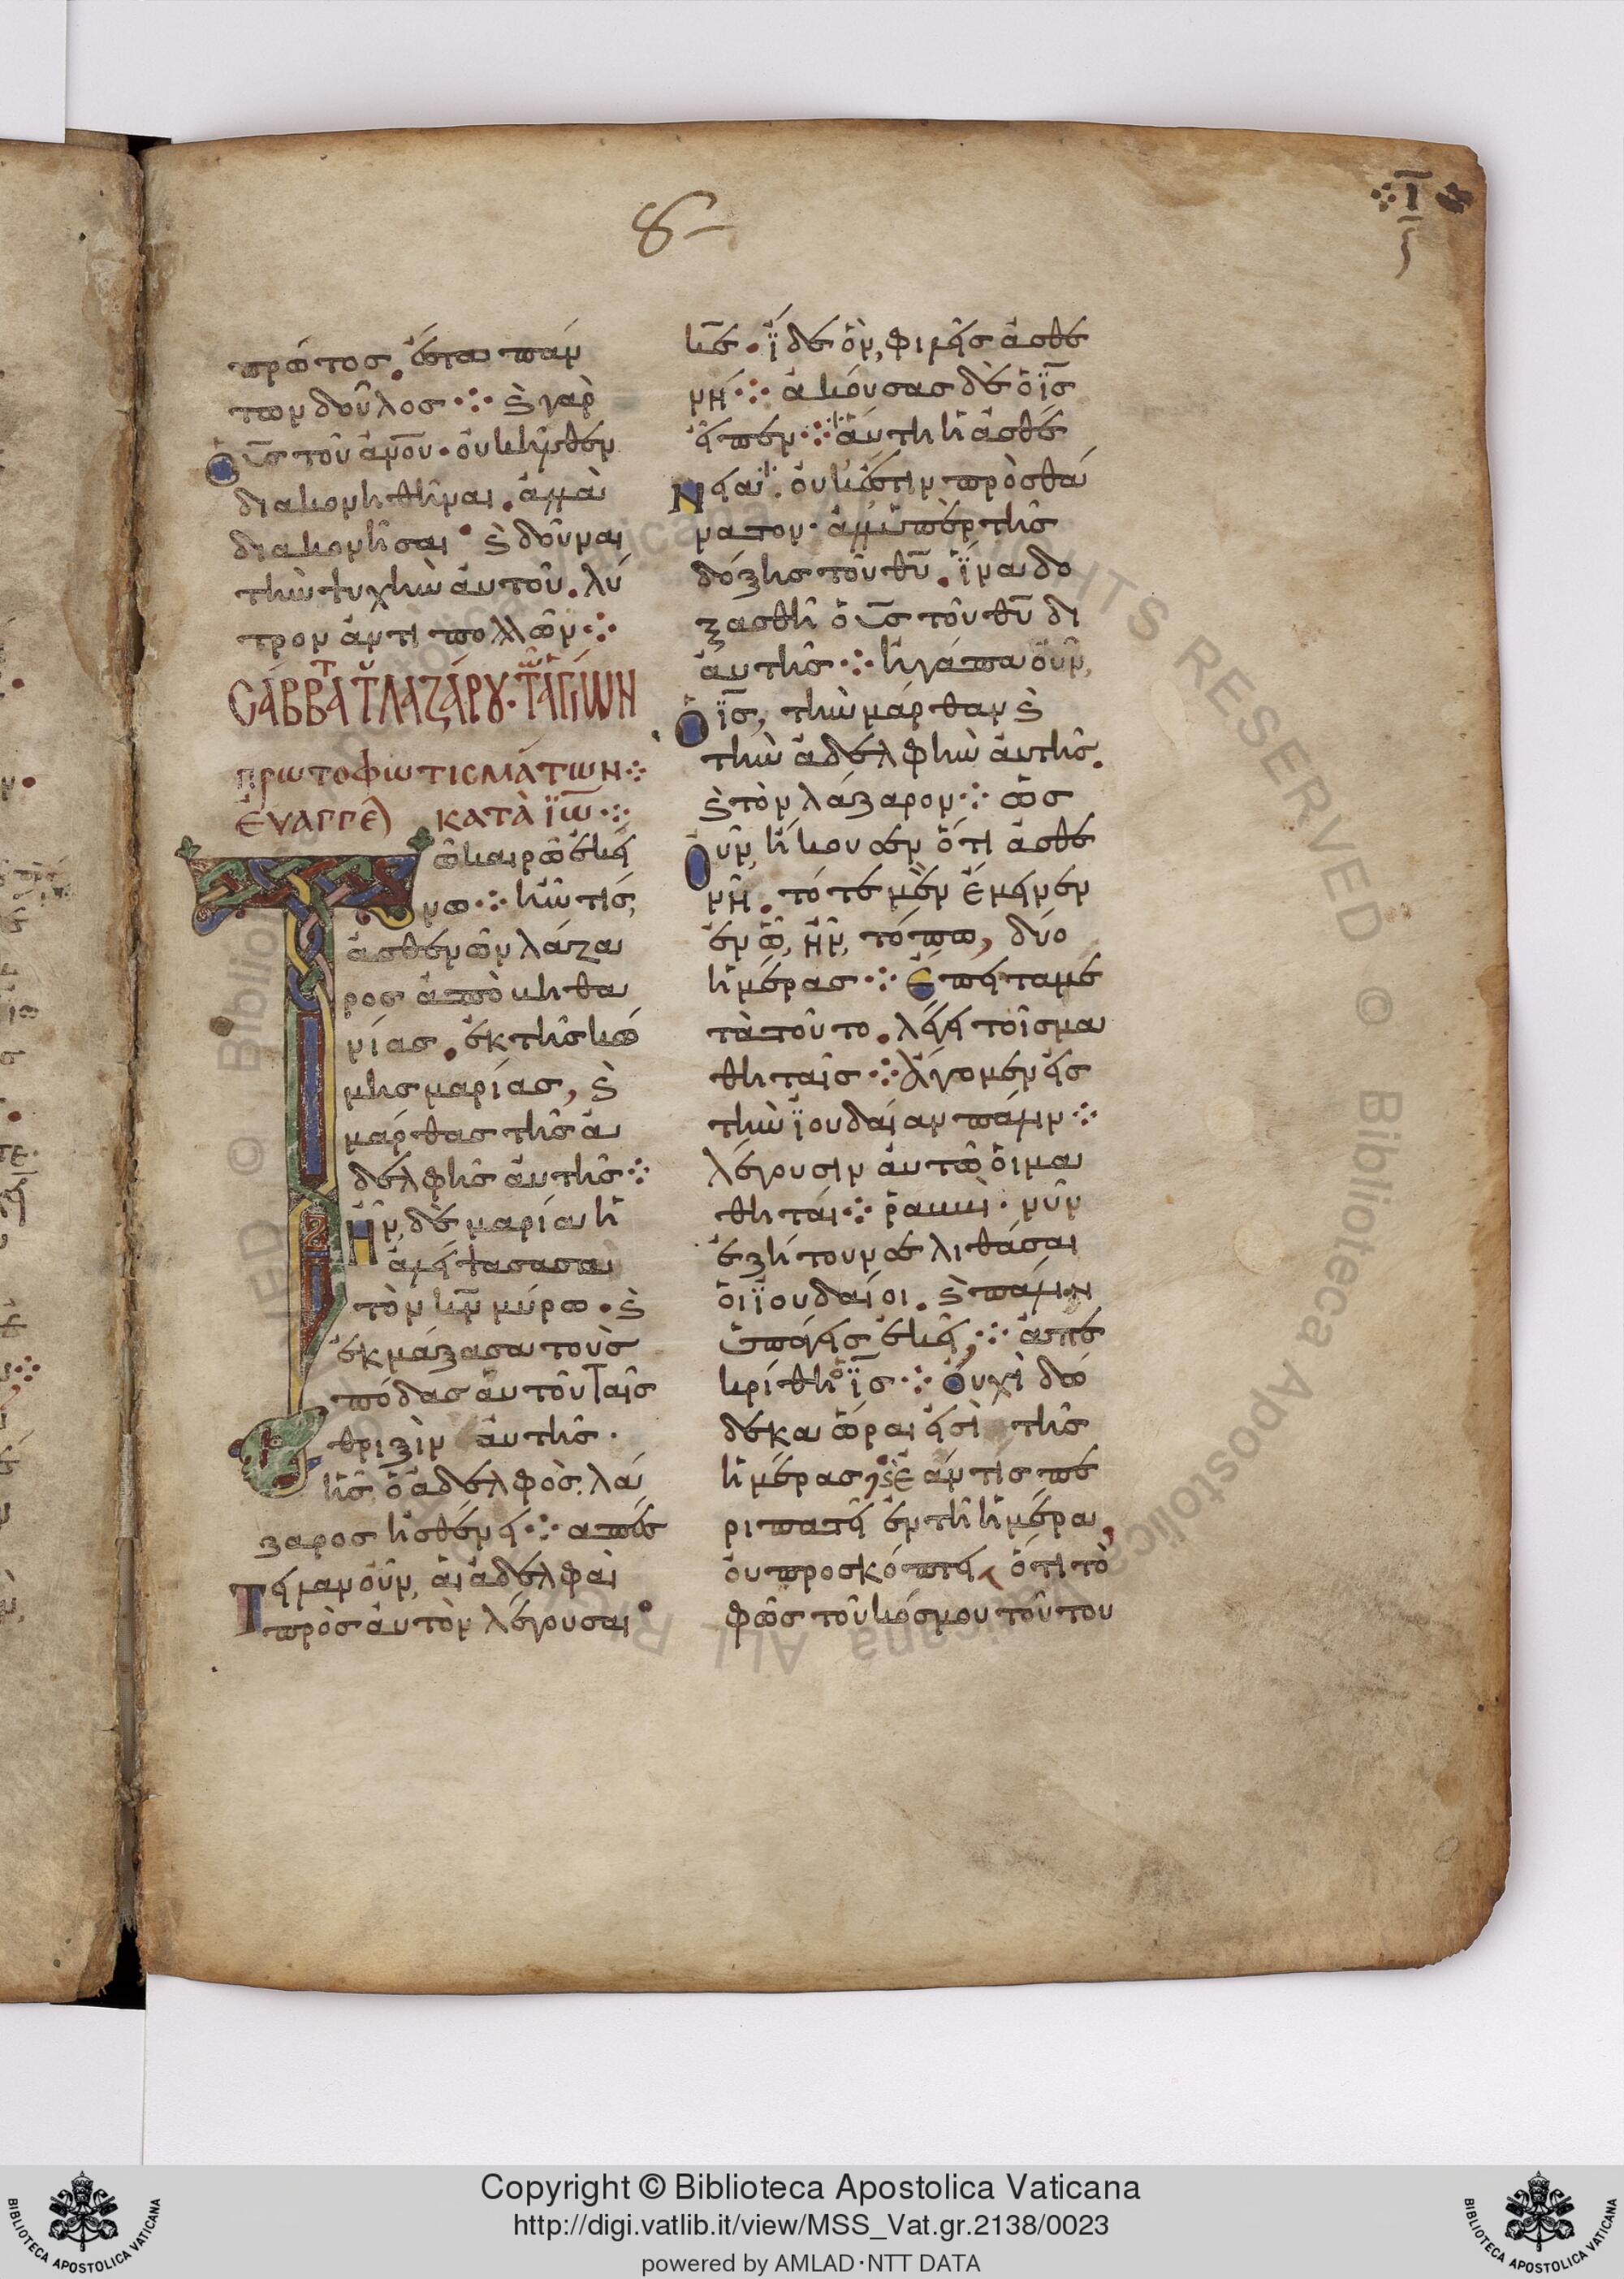 8-
Ι
ς
πρῶτος. ἔσται πάν
των δοῦλος ⁘ ϗ γὰρ
ὁ ῡς τοῦ ἀνο̄υ· οὐκ ἦλθεν
διακονηθῆναι. ἀλλὰ
διακονῆσαι· ϗ δοῦναι
τὴν ψυχὴν ἀυτοῦ. λύ
τρον ἀντὶ πολλῶν ⁘
ϹΑΒΒΑΤ ΤΟΥ ΛΑΖΑΡΟΥ· ΤΩΝ ΑΓΙΩΝ
ΠΡΩΤΟΦΩΤΙϹΜΑΤΩΝ ⁘
ΕΥΑΓΓΕΛ ΚΑΤΑ ΪΩ̄ ⁘
Τῶ καιρῶ ἐκεί
νω ⁘ ἦν τίς,
ἀσθενῶν λάζα
ρος ἀπὸ βηθα
νίας. ἐκ τῆς κώ
μης μαρίας, ϗ
μάρθας τῆς ἀ
δελφῆς ἀυτῆς ⁘
Ἦν, δὲ μαρία ἡ
ἀλείψασα
τὸν κν̄ μύρω· ϗ
ἐκμάξασα τοὺς
πόδας ἀυτοῦ ταῖς
θριξὶν ἀυτῆς·
ἧς ὁ ἀδελφὸς λά
ζαρος ἠσθένει ⁘ ἀπέσ
Τειλαν οὖν, ἁι ἀδελφαὶ
πρὸς ἀυτὸν λέγουσαι·
κε̄. ἴδε ὃν, φιλεῖς ἀσθε
νεῖ ⁘ ἀκούσας δὲ ὁ ῑς
εἶπεν ⁘ ἅυτη ἡ ἀσθέ
Νεια. οὐκ ἔστιν πρὸς θά
νατον· ἀλλ' ὑπὲρ τῆς
δόξης τοῦ θῡ. ἵνα δο
ξασθῆ ὁ ῡς τοῦ θῡ δι
ἀυτῆς ⁘ ἠγάπα οὖν,
Ὁ ῑς, τὴν μάρθαν ϗ
τὴν ἀδελφὴν ἀυτῆς.
ϗ τὸν λάζαρον ⁘ ὡς
Οὖν, ἤκουσεν ὅτι ἀσθε
νεῖ. τότε μὲν ἔμεινεν
ἐν ὧ, ἦν, τόπω, δύο
ἡμέρας ⁘ Ἔπειτα με
τὰ τοῦτο. λέγει τοῖς μα
θηταῖς ⁘ ἄγομεν εἰς
τὴν ἰουδαίαν πάλιν ⁘
λέγουσιν ἀυτῶ ὁι μα
θηταί ⁘ ῥαββί· νῦν
ἐζήτουν σε λιθάσαι
ὁι ἰουδαίοι. ϗ πάλιν
ὑπάγεις ἐκεῖ, ⁘ ἀπε
κρίθη ὁ ῑς ⁘ Ὀυχὶ δώ
δεκα ὧραι εἰσὶ τῆς
ἡμέρας, ἐάν τίς πε
ριπατῆ ἐν τῆ ἡμέρα,
ὀυ προσκόπτει, ὅτι τὸ
φῶς τοῦ κόσμου τούτου
Copyright © Biblioteca Apostolica Vaticana
http://digi.vatlib.it/view/MSS_Vat.gr.2138/0023
powered by AMLAD·NTT DATA
BIBLIOTECA APOSTOLICA VATICANA
BIBLIOTECA APOSTOLICA VATICANA